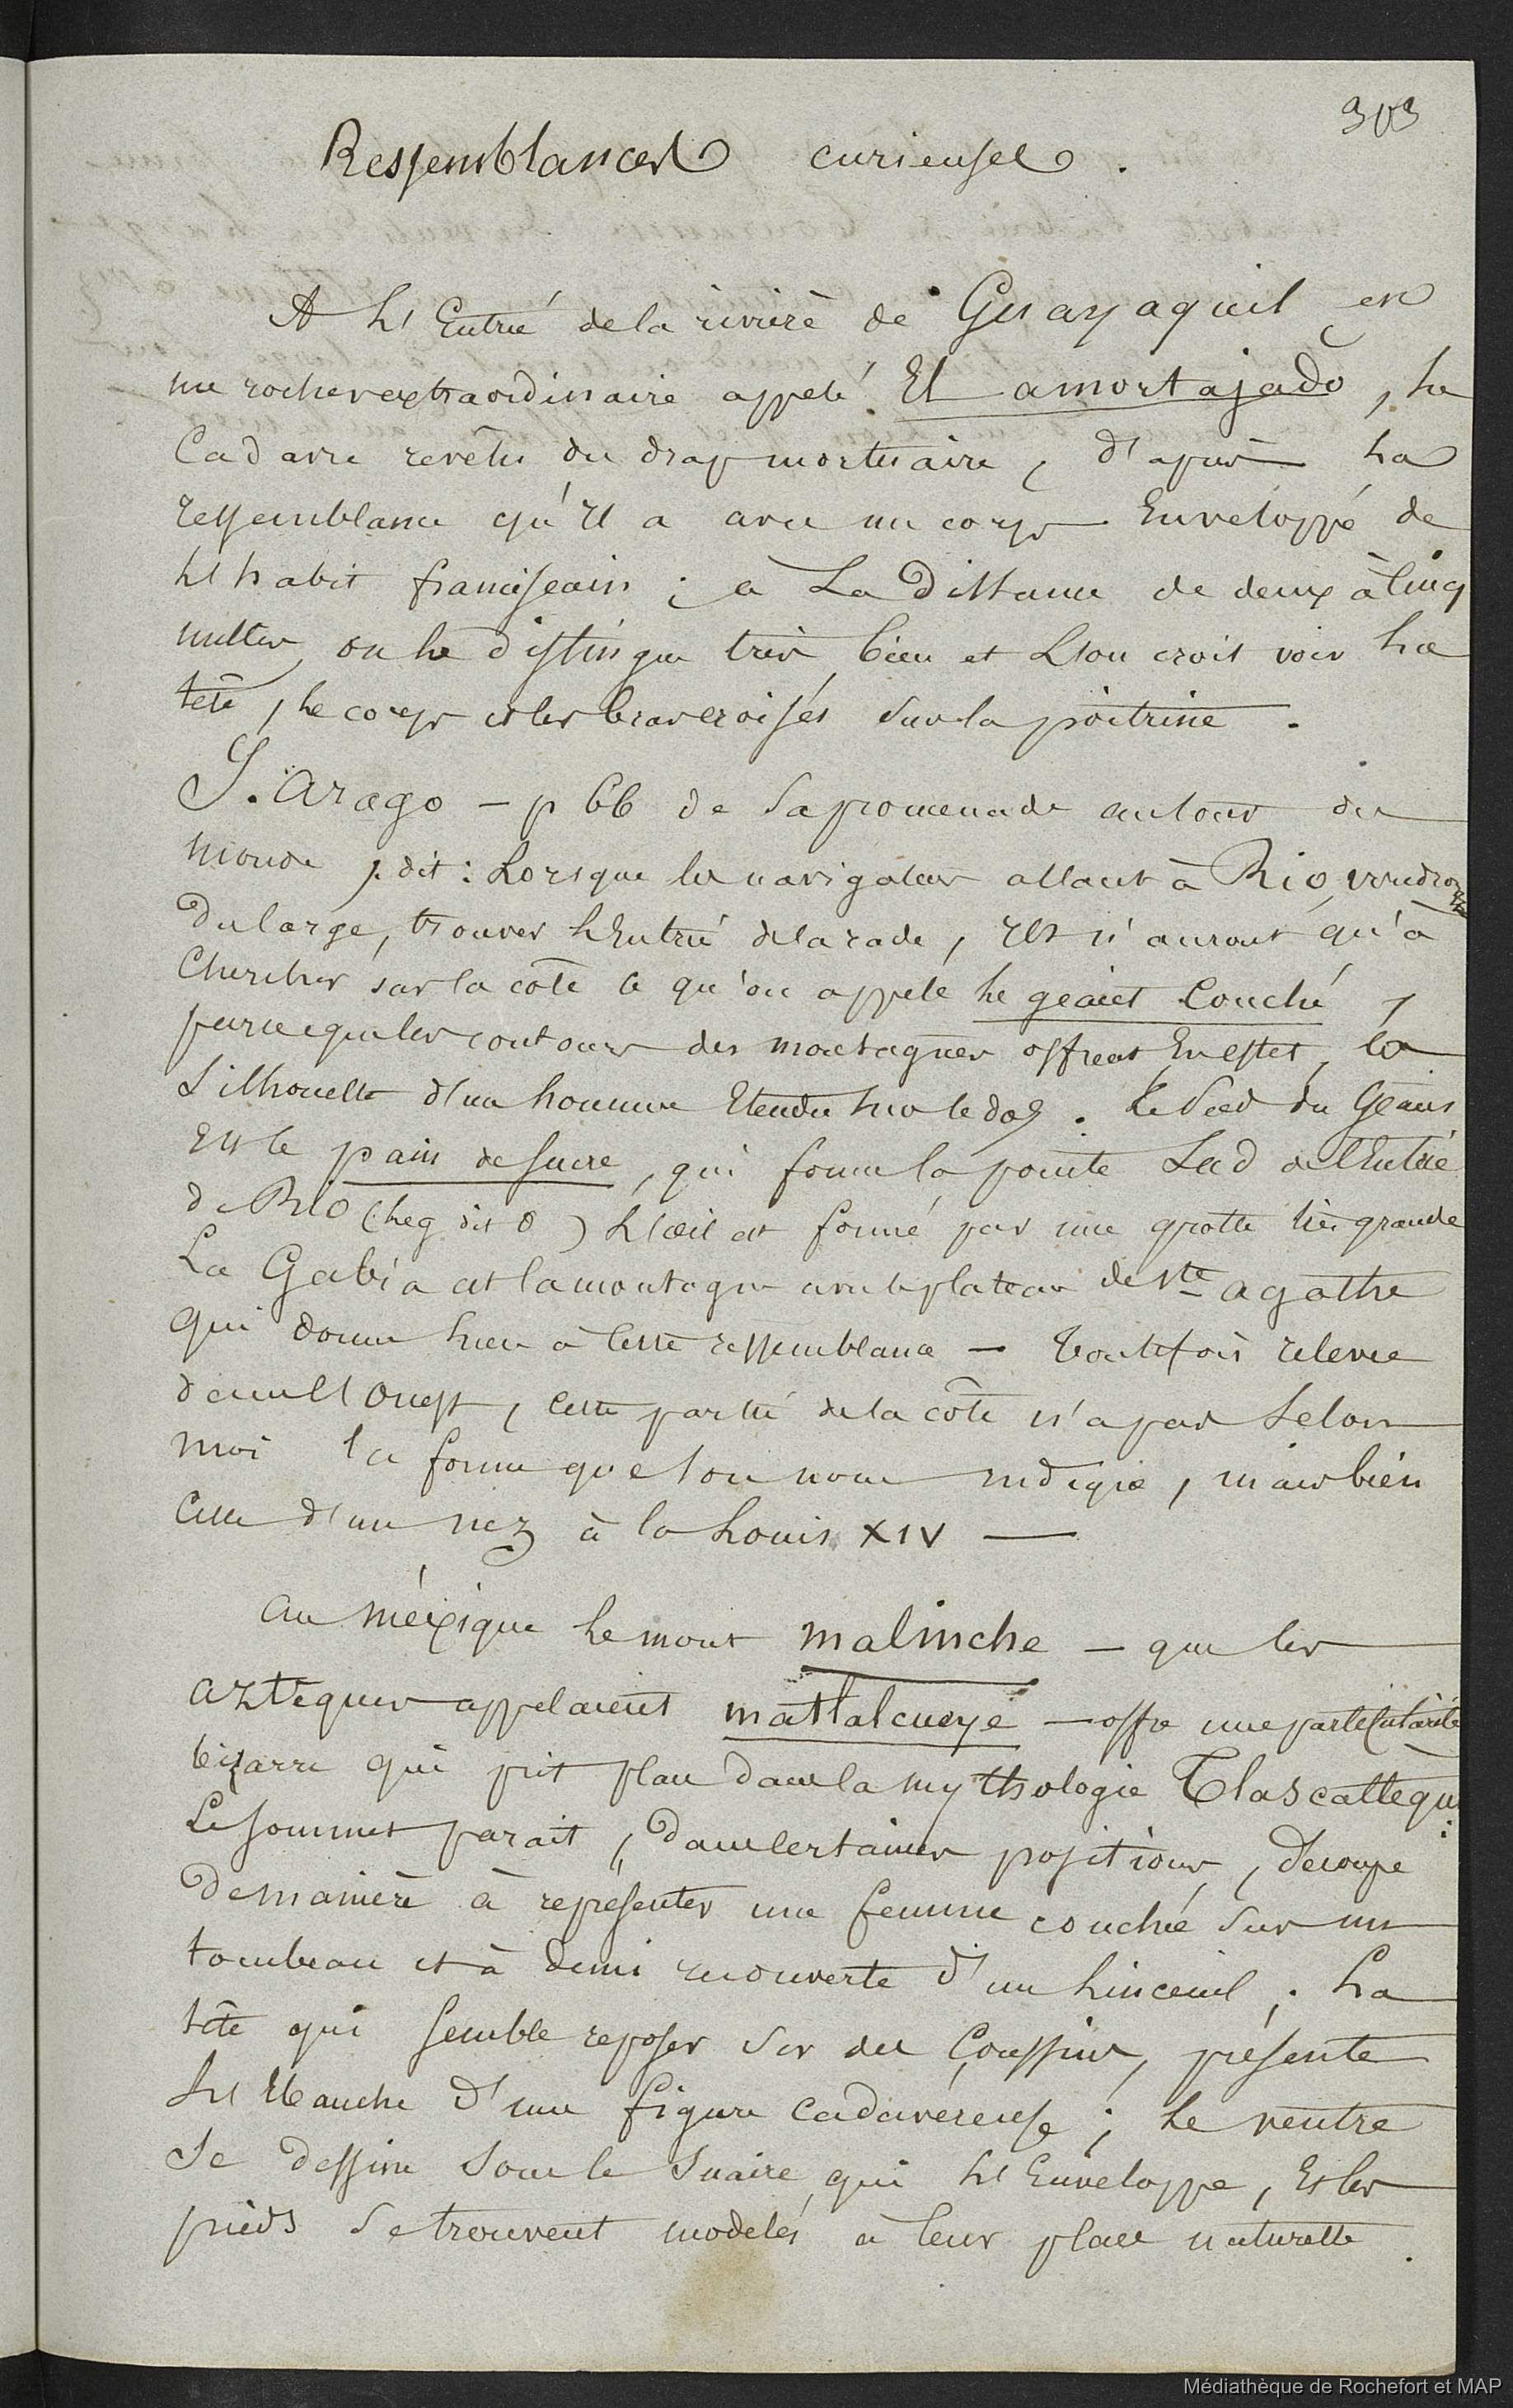 303
Ressemblances curieuses.
A l'Entrée de la rivière de Guayaquil est
un rocher extraordinaire appelé El amortajado, le
Cadavre revêtu du drap mortuaire, d'après la
ressemblance qu'il a avec un corps Enveloppé de
l'habit franciscain ; à La Distance de deux à Cinq
milles, on le distingue très bien et L'on croit voir la
tête, le corps et les bras croisés sur la poitrine.
J. Arago — p 66 de sa promenade autour du
monde, dit : Lorsque les navigateurs allant à Rio, voudront
Du large, trouver l'Entrée de la rade, ils n'auront qu'à
Chercher sur la côte ce qu'on appelle le géant Couché,
parce que les contours des montagnes offrent En effet, la
Silhouette d'un homme Etendu sur le dos. Le Pied du Géant
est le pain de sucre, qui forme la pointe Sud de l'Entrée
de Rio L'œil est formé par une grotte très grande
La Gabia est la montagne avec le plateau de Ste agathe
qui donne lieu à Cette ressemblance — Toutefois relevée
dans l'Ouest, Cette partie de la côte n'a pas Selon
moi la forme que son nom indique, mais bien
Celle d'un nez à la Louis XIV —
au méxique le mont malinche — que les
aztèques appelaient matlalcueye — offre une particularité
bizarre qui prit place dans la mythologie Tlascaltèque :
Le sommet parait, dans Certaines positions, Découpé
De manière à représenter une femme couchée sur un
tombeau et à demi recouverte d'un linceuil ; La
tête qui semble reposer sur des Coussins, présente
L'Ebauche d'une figure Cadavéreuse ; Le ventre
se dessine sous le suaire qui l'Enveloppe, Et les
pieds se trouvent modelés à leur place naturelle.
Médiathèque de Rochefort et MAP